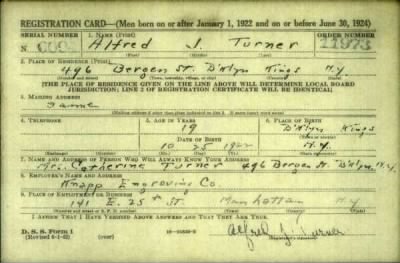 REGISTRATION CARD—(Men born on or after January 1, 1922 and on or before June 30, 1924)
SERIAL NUMBER 1. NAME (Print) ORDER NUMBER
N Alfred J. Turner 11973
(First) (Middle) (Last)
2. PLACE OF RESIDENCE (Print)
496 Bergen St. B'klyn Kings N.Y.
(Number and street) (Town, township, village, or city) (County) (State)
[THE PLACE OF RESIDENCE GIVEN ON THE LINE ABOVE WILL DETERMINE LOCAL BOARD
JURISDICTION; LINE 2 OF REGISTRATION CERTIFICATE WILL BE IDENTICAL]
3. MAILING ADDRESS
Same
4. TELEPHONE 5. AGE IN YEARS 6. PLACE OF BIRTH
19 B'klyn Kings
DATE OF BIRTH
10 25 1922 N.Y.
7. NAME AND ADDRESS OF PERSON WHO WILL ALWAYS KNOW YOUR ADDRESS
Mrs. Catherine Turner 496 Bergen St. B'klyn, N.Y.
8. EMPLOYER'S NAME AND ADDRESS
Knapp Engraving Co.
9. PLACE OF EMPLOYMENT OR BUSINESS
141 E. 25th St. Manhattan N.Y.
(Number and street or R. F. D. number) (Town) (County) (State)
I AFFIRM THAT I HAVE VERIFIED ABOVE ANSWERS AND THAT THEY ARE TRUE.
D. S. S. Form 1
(over) Alfred J. Turner